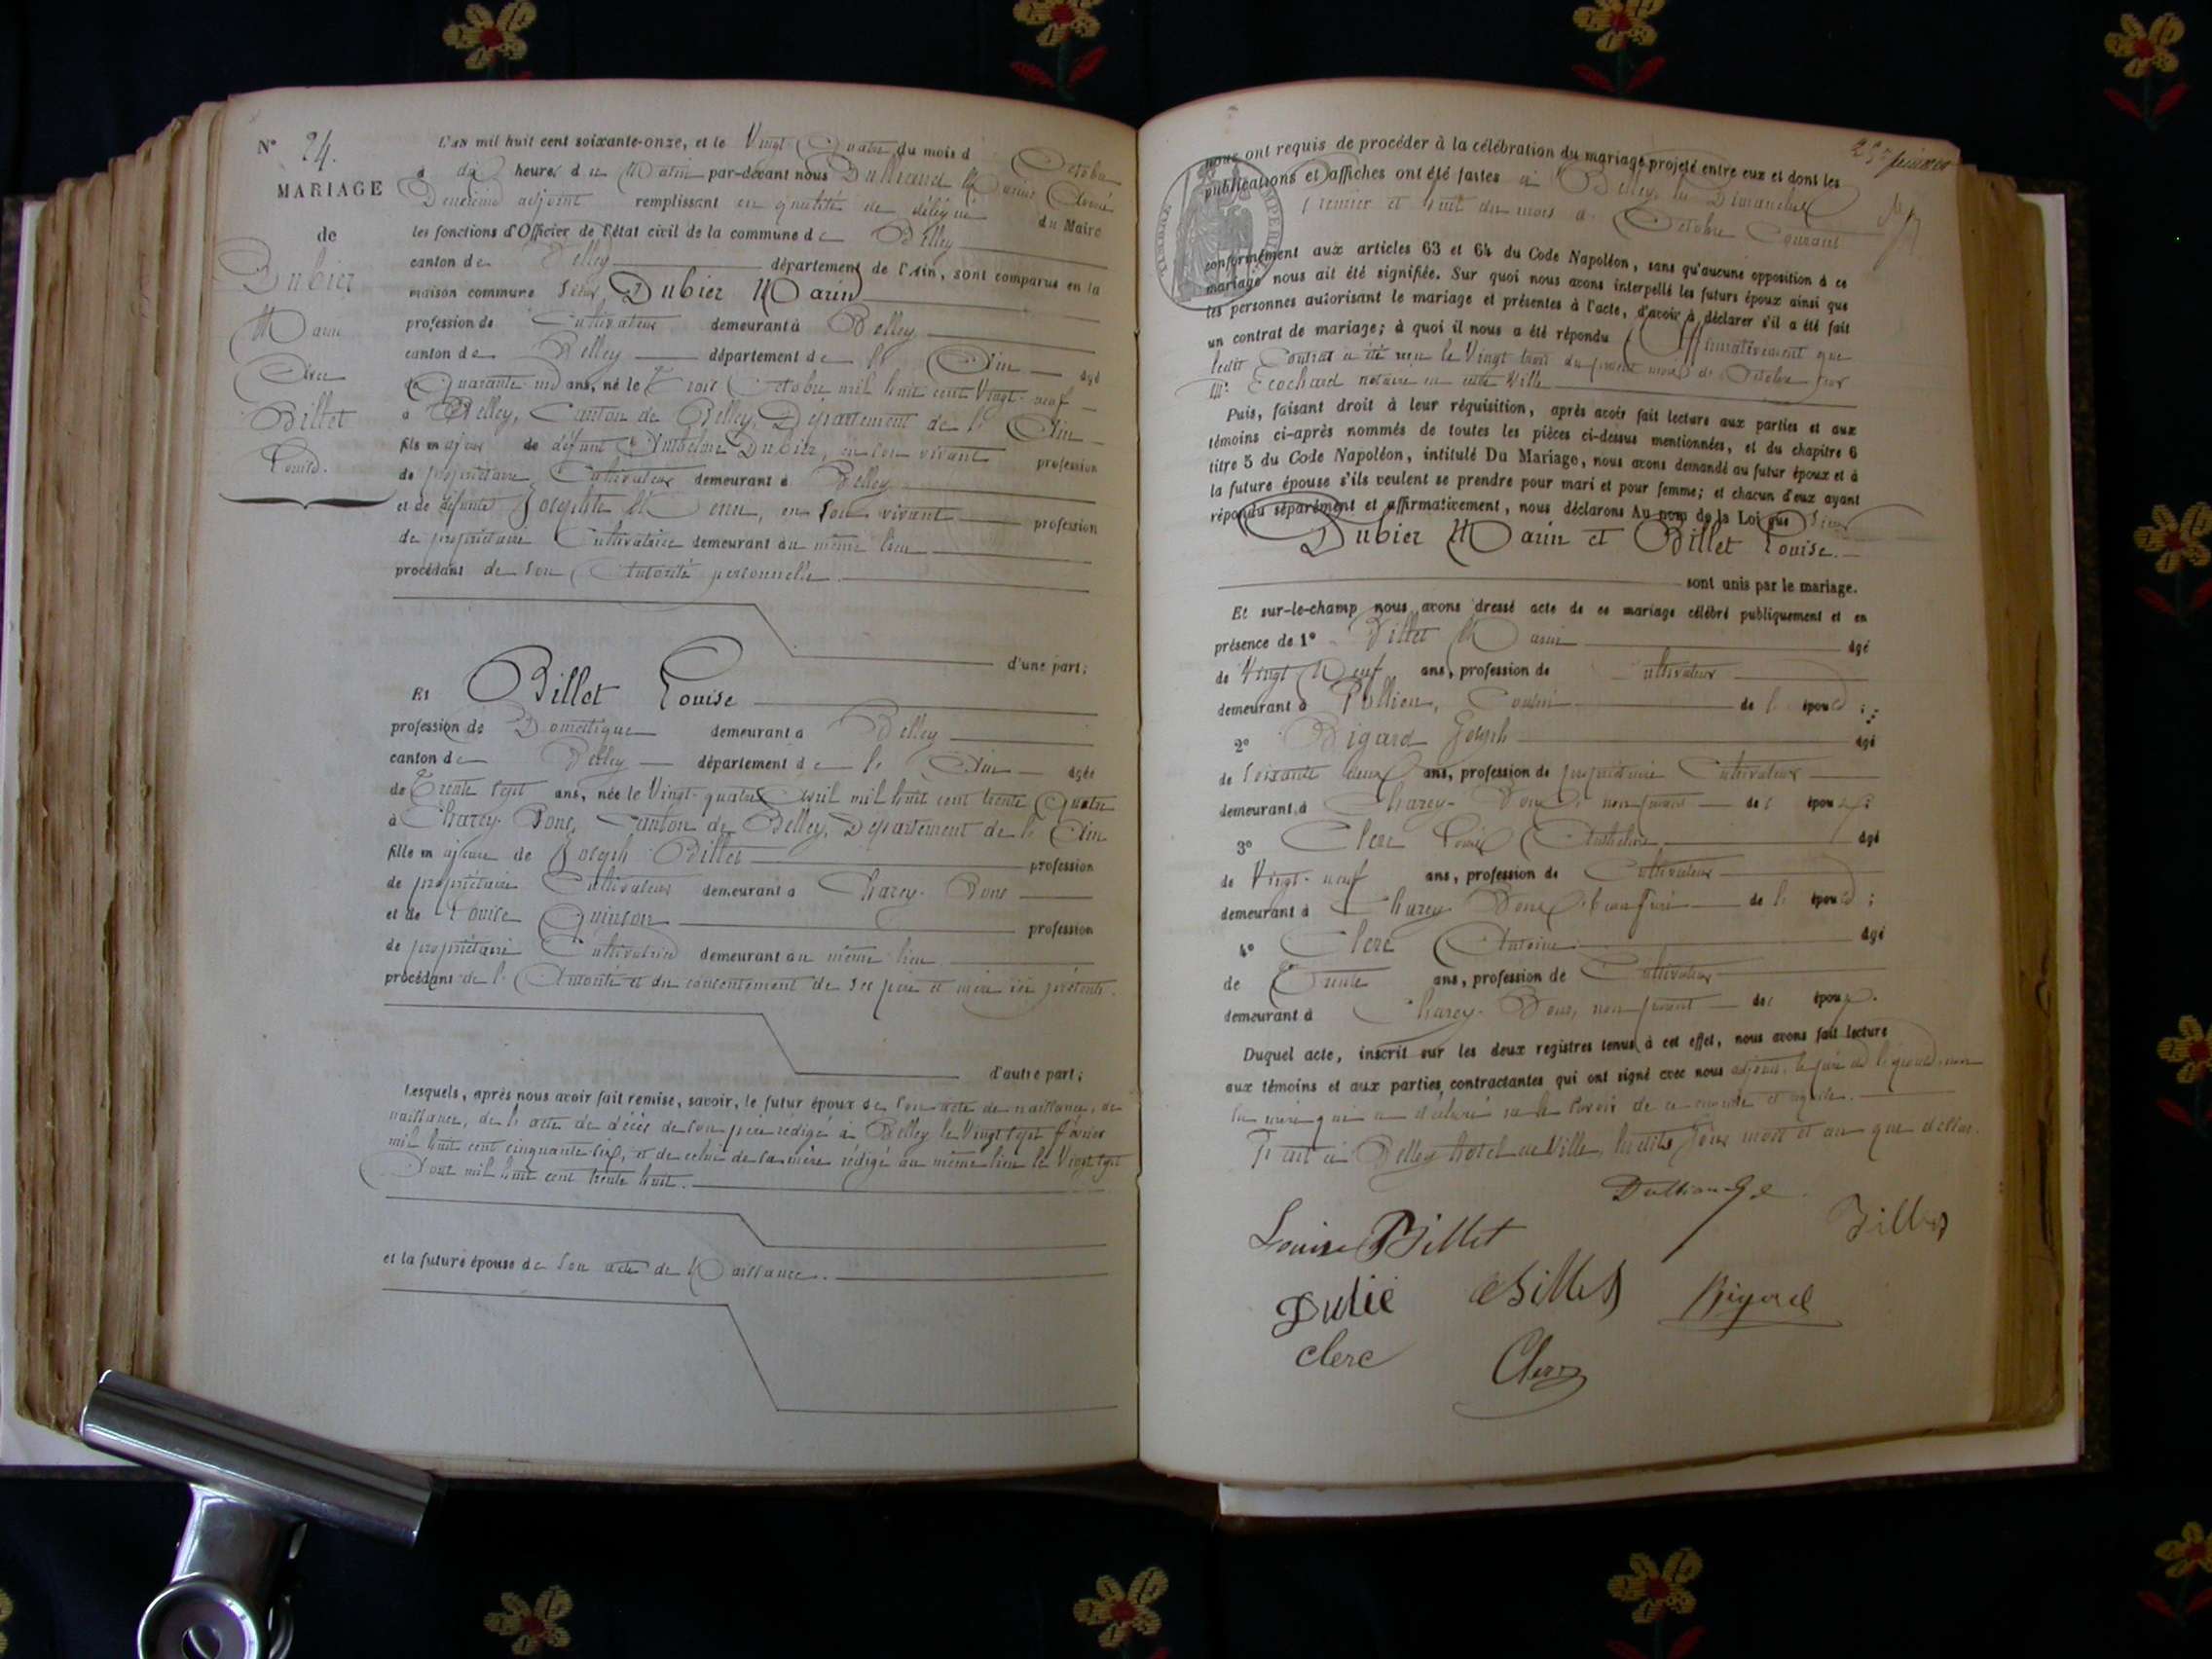 N° 24.
MARIAGE
de
Dubier
Marin
Avec
Billet
Louise.
L'an mil huit cent soixante-onze, et le Vingt Quatre du mois d Octobre
à dix heures du Matin par-devant nous Marius
Deuxième adjoint remplissant en qualité de délégué du Maire
les fonctions d'Officier de l'état civil de la commune de Belley
canton de Belley département de l'Ain, sont comparus en la
maison commune Sieur Dubier Marin
profession de Cultivateur demeurant à Belley
canton de Belley département de l' Ain âgé
de Quarante deux ans, né le Trois Octobre mil huit cent Vingt-neuf
à Belley, Canton de Belley, Département de l' Ain
fils majeur de défunt Anthelme Dubier, en son vivant profession
de propriétaire Cultivateur demeurant à Belley
et de défunte Josephte en son vivant profession
de propriétaire Cultivatrice demeurant au même lieu
procédant de son Autorité personnelle.
d'une part;
Et Billet Louise
profession de Domestique demeurant à Belley
canton de Belley département de l' Ain âgée
de Trente sept ans, née le Vingt-quatre Avril mil huit cent trente Quatre
à Charey-Dons, Canton de Belley, Département de l' Ain
fille majeure de Joseph Billet profession
de propriétaire Cultivateur demeurant à Charey-Dons
et de Louise Guinson profession
de propriétaire Cultivatrice demeurant au même lieu
procédant de l' Autorité et du consentement de ses père et mère ici présents.
d'autre part;
Lesquels, après nous avoir fait remise, savoir, le futur époux de son acte de naissance, de
naissance, de l' acte de décès de son père rédigé à Belley le Vingt sept février
mil huit cent cinquante six, et de celui de sa mère rédigé au même lieu le Vingt sept
Aout mil huit cent trente huit.
et la future épouse de son acte de Naissance.
nous ont requis de procéder à la célébration du mariage projeté entre eux et dont les
publications et affiches ont été faites à Belley, les Dimanches
Premier et huit du mois d' Octobre Courant
conformément aux articles 63 et 64 du Code Napoléon, sans qu'aucune opposition à ce
mariage nous ait été signifiée. Sur quoi nous avons interpellé les futurs époux ainsi que
les personnes autorisant le mariage et présentes à l'acte, d'avoir à déclarer s'il a été fait
un contrat de mariage; à quoi il nous a été répondu Affirmativement que
ledit Contrat a été reçu le Vingt trois du présent mois de Octobre par
Me Ecochard notaire en cette Ville
Puis, faisant droit à leur réquisition, après avoir fait lecture aux parties et aux
témoins ci-après nommés de toutes les pièces ci-dessus mentionnées, et du chapitre 6
titre 5 du Code Napoléon, intitulé Du Mariage, nous avons demandé au futur époux et à
la future épouse s'ils veulent se prendre pour mari et pour femme; et chacun d'eux ayant
répondu séparément et affirmativement, nous déclarons Au nom de la Loi que Sieur
Dubier Marin et Billet Louise.
sont unis par le mariage.
Et sur-le-champ nous avons dressé acte de ce mariage célébré publiquement et en
présence de 1° Billet Marin âgé
de Vingt Neuf ans, profession de Cultivateur
demeurant à Pollieu, Cousin de l' épouse;
2° Bigard Joseph âgé
de soixante deux ans, profession de propriétaire Cultivateur
demeurant à Charey-Dons, non parent des époux;
3° Clerc Louis Anthelme âgé
de Vingt-neuf ans, profession de Cultivateur
demeurant à Charey-Dons, beau frère de l' épouse;
4° Clerc Antoine âgé
de Trente ans, profession de Cultivateur
demeurant à Charey-Dons, non parent des époux.
Duquel acte, inscrit sur les deux registres tenus à cet effet, nous avons fait lecture
aux témoins et aux parties contractantes qui ont signé avec nous adjoint, le père de l'épouse, non
la mère qui a déclaré ne le savoir de ce enquise et requise.
Fait à Belley hotel de Ville, lesdits Jour mois et an que dessus.
Louise Billet
Billet
Dubié
Billet
Bigard
clerc
Clerc